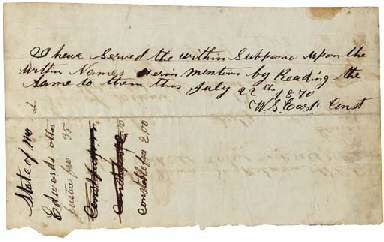 I have Served the within Subpoena upon the
within Names Herin mention by Reading the
Same to them this July 22th 1870
Const
State of Mo
Edwards
Justice fee 75
Constable fee 200